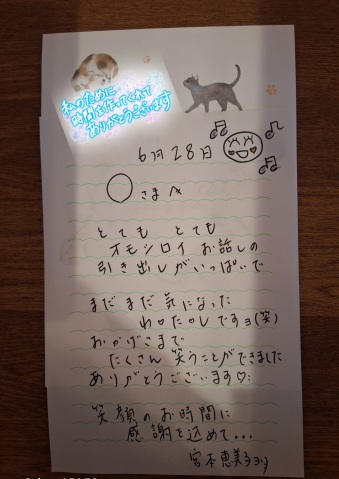 私のために
時間を作ってくれて
ありがとうございます
6月28日
〇さまへ
とても とても
オモシロイ お話しの
引き出しがいっぱいで
まだまだ気になった
わ♡た♡しですョ(笑)
おかげさまで
たくさん笑うことができました
ありがとうございます♡
笑顔のお時間に
感謝を込めて...
宮本恵美子ョリ